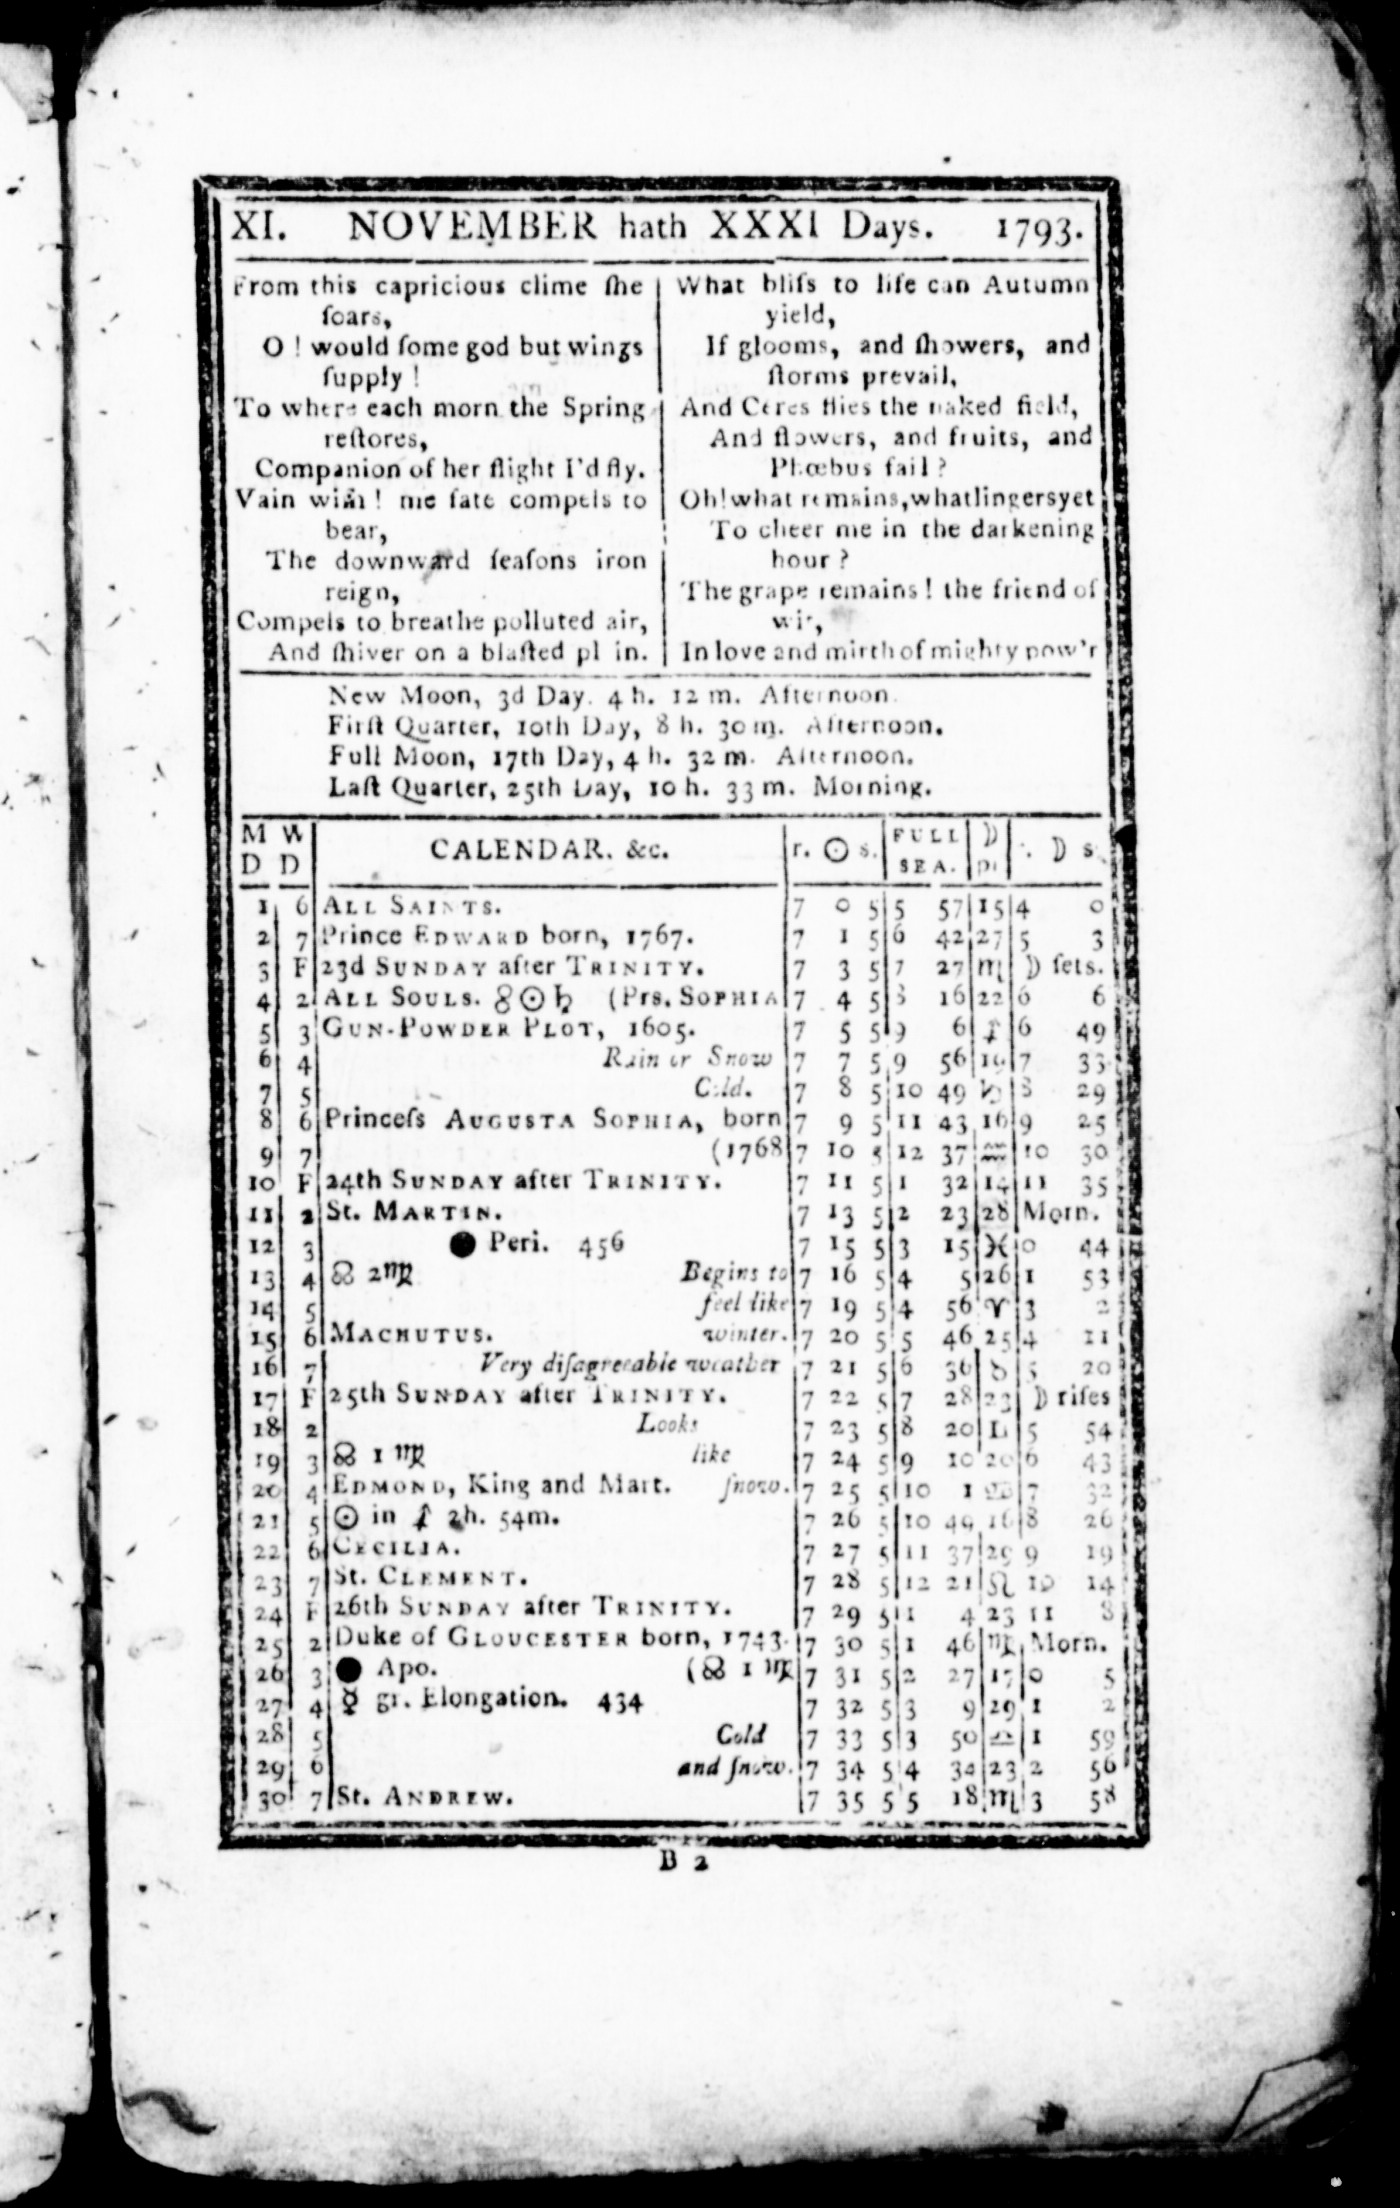 XI. NOVEMBER hath XXXI Days. 1793.
From this capricious clime ſhe
ſoars,
O ! would ſome god but wings
ſupply !
To where each morn the Spring
reſtores,
Companion of her flight I'd fly.
Vain wiſh ! me fate compels to
bear,
The downward ſeaſons iron
reign,
Compels to breathe polluted air,
And ſhiver on a blaſted pl in.
What bliſs to life can Autumn
yield,
If glooms, and ſhowers, and
ſtorms prevail,
And Ceres flies the naked field,
And flowers, and fruits, and
Phœbus fail ?
Oh! what remains, what lingers yet
To cheer me in the darkening
hour ?
The grape remains ! the friend of
wit,
In love and mirth of mighty pow'r
New Moon, 3d Day. 4 h. 12 m. Afternoon.
Firſt Quarter, 10th Day, 8 h. 30 m. Afternoon.
Full Moon, 17th Day, 4 h. 32 m. Afternoon.
Laſt Quarter, 25th Day, 10 h. 33 m. Morning.
M D W D CALENDAR. &c. r. ☉ s. FULL SEA. ☽ pl ☽ s.
1 6 ALL SAINTS. 7 0 5 5 57 15 4 0
2 7 Prince EDWARD born, 1767. 7 1 5 6 42 27 5 3
3 F 23d SUNDAY after TRINITY. 7 3 5 7 27 ♏ ☽ ſets.
4 2 ALL SOULS. ☍ ☉ ♄ (Prs. SOPHIA 7 4 5 8 16 22 6 6
5 3 GUN-POWDER PLOT, 1605. 7 5 5 9 6 ♐ 6 49
6 4 Rain or Snow 7 7 5 9 56 19 7 33
7 5 Cold. 7 8 5 10 49 ♑ 8 29
8 6 Princeſs AUGUSTA SOPHIA, born 7 9 5 11 43 16 9 25
9 7 (1768 7 10 5 12 37 ♒ 10 30
10 F 24th SUNDAY after TRINITY. 7 11 5 1 32 14 11 35
11 2 St. MARTIN. 7 13 5 2 23 28 Morn.
12 3 ● Peri. 456 7 15 5 3 15 ♓ 0 44
13 4 ☊ 2 ♍ Begins to 7 16 5 4 5 26 1 53
14 5 feel like 7 19 5 4 56 ♈ 3 2
15 6 MACHUTUS. winter. 7 20 5 5 46 25 4 11
16 7 Very diſagreeable weather 7 21 5 6 36 ♉ 5 20
17 F 25th SUNDAY after TRINITY. 7 22 5 7 28 23 ☽ riſes
18 2 Looks 7 23 5 8 20 5 54
19 3 ☊ 1 ♍ like 7 24 5 9 10 20 6 43
20 4 EDMOND, King and Mart. ſnow. 7 25 5 10 1 ♋ 7 32
21 5 ☉ in ♐ 2h. 54m. 7 26 5 10 49 16 8 26
22 6 CECILIA. 7 27 5 11 37 29 9 19
23 7 St. CLEMENT. 7 28 5 12 21 ♌ 10 14
24 F 26th SUNDAY after TRINITY. 7 29 5 1 4 23 11 8
25 2 Duke of GLOUCESTER born, 1743. 7 30 5 1 46 ♍ Morn.
26 3 ● Apo. (☊ 1 ♍ 7 31 5 2 27 17 0 5
27 4 ☿ gr. Elongation. 434 7 32 5 3 9 29 1 2
28 5 Cold 7 33 5 3 50 ♎ 1 59
29 6 and ſnow. 7 34 5 4 34 23 2 56
30 7 St. ANDREW. 7 35 5 5 18 ♏ 3 58
B 2